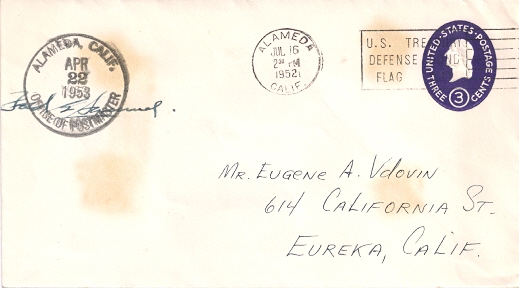 ALAMEDA, CALIF.
APR
22
1953
OFFICE OF POSTMASTER
ALAMEDA
JUL 16
2 PM
1952
CALIF.
U.S. TRE
DEFENSE
FLAG
UNITED·STATES·POSTAGE
THREE 3 CENTS
MR. EUGENE A. VDOVIN
614 CALIFORNIA ST.
EUREKA, CALIF.